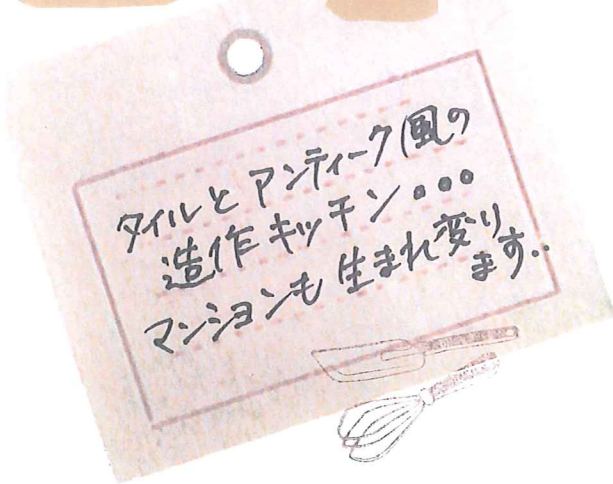 タイルとアンティーク風の
造作キッチン・・・
マンションも生まれ変り
ます‥